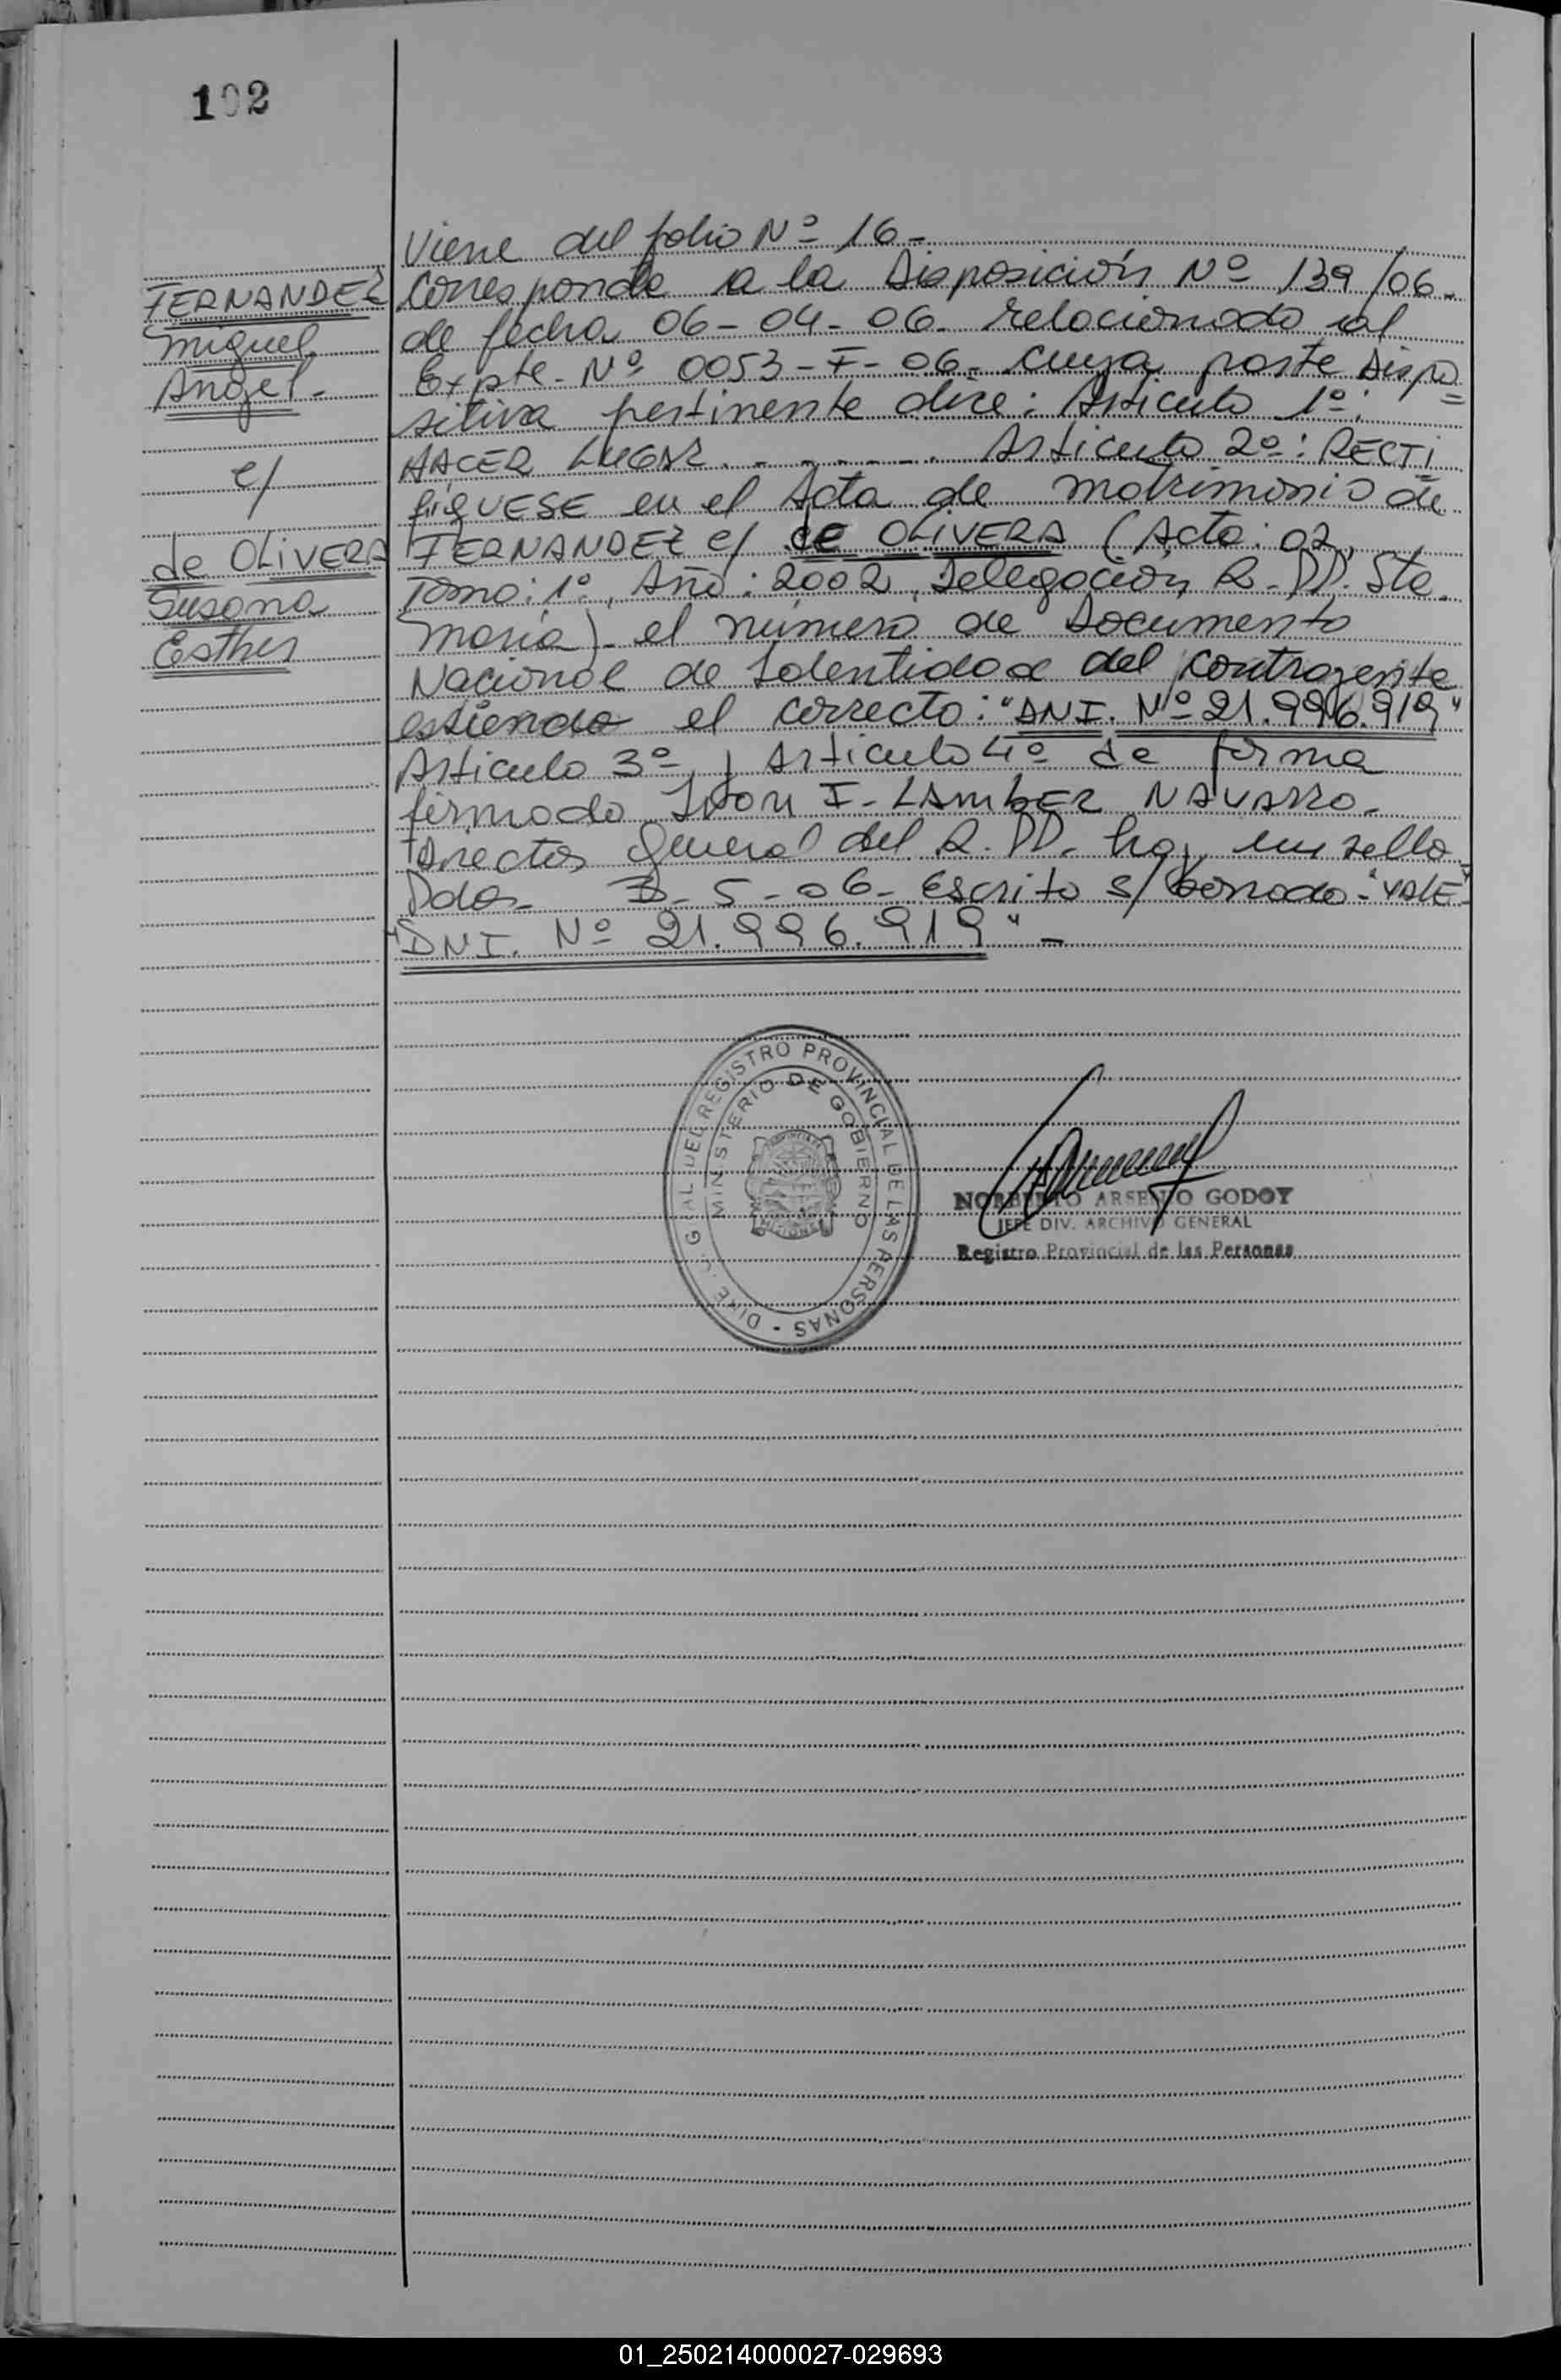 102
FERNANDEZ
Miguel
Angel.-
c/
de OLIVERA
Susana
Esther
Viene del folio Nº 16-
Corresponde a la Disposición Nº 139/06-
de fecha 06-04-06- relacionado al
Expte- Nº 0053-F-06- cuya parte Dispo
sitiva pertinente dice: Artículo 1º:
HACER LUGAR - - - - - Artículo 2º: RECTI
fíQUESE en el Acta de matrimonio de
FERNANDEZ c/ de OLIVERA (Acta: 02,
Tomo: 1º, Año: 2002, Delegación R.PP. Sta.
María)- el número de Documento
Nacional de Identidad del contrayente
siendo el correcto: "DNI. Nº 21.996.919"
Artículo 3º y Artículo 4º de forma
firmado I- LAMBER NAVARRO-
Director General del R.PP. hay un sello-
Pdas- 3-5-06- Escrito s/ borrado-"VALE"
"DNI. Nº 21.996.919"-
DIREC. GRAL DEL REGISTRO PROVINCIAL DE LAS PERSONAS -
MINISTERIO DE GOBIERNO
MISIONES
NORBERTO ARSENIO GODOY
JEFE DIV. ARCHIVO GENERAL
Registro Provincial de las Personas
01_250214000027-029693